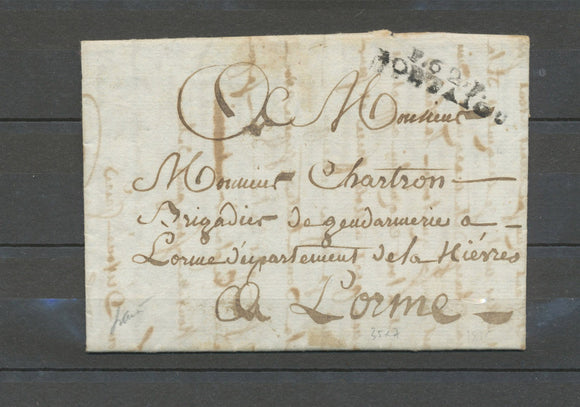 P.62.P.
MONTAIGU
A Monsieur
Monsieur Chartron
Brigadier de gendarmerie a
Lorme département de la Niévres
A Lorme
35x7